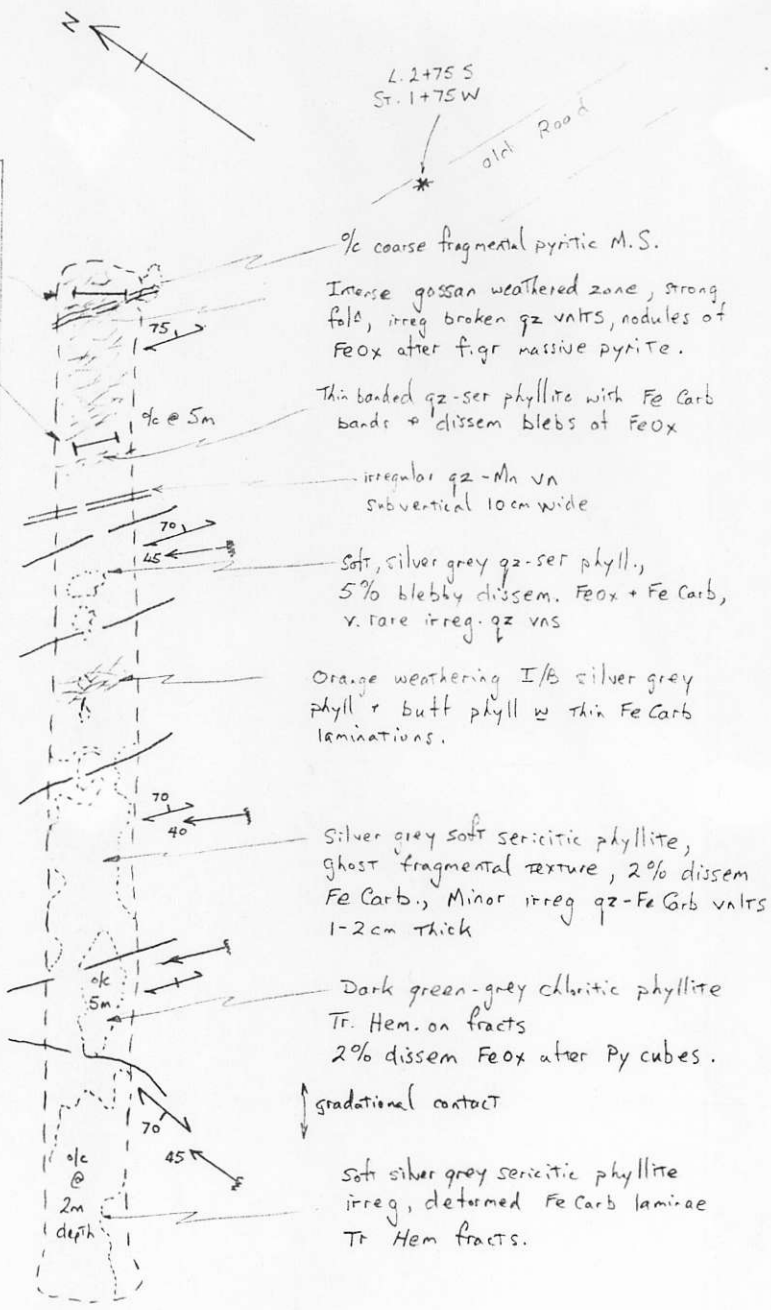 N
L. 2+75 S
ST. 1+75 W
old Road
o/c coarse fragmental pyritic M.S.
Intense gossan weathered zone, strong
fol^n, irreg broken qz vnlts, nodules of
FeOx after f.gr massive pyrite.
75
Thin banded qz-ser phyllite with Fe Carb
bands + dissem blebs of FeOx
o/c @ 5m
irregular qz-Mn vn
subvertical 10cm wide
70
45
Soft, silver grey qz-ser phyll.,
5% blebby dissem. FeOx + Fe Carb,
v. rare irreg. qz vns
Orange weathering I/B silver grey
phyll + buff phyll w thin Fe Carb
laminations.
70
40
Silver grey soft sericitic phyllite,
ghost fragmental texture, 2% dissem
Fe Carb., Minor irreg qz-Fe Carb vnlts
1-2cm thick
o/c
5m.
Dark green-grey chloritic phyllite
Tr. Hem. on fracts
2% dissem FeOx after Py cubes.
gradational contact
70
45
o/c
@
2m
depth
Soft silver grey sericitic phyllite
irreg, deformed Fe Carb laminae
Tr Hem fracts.